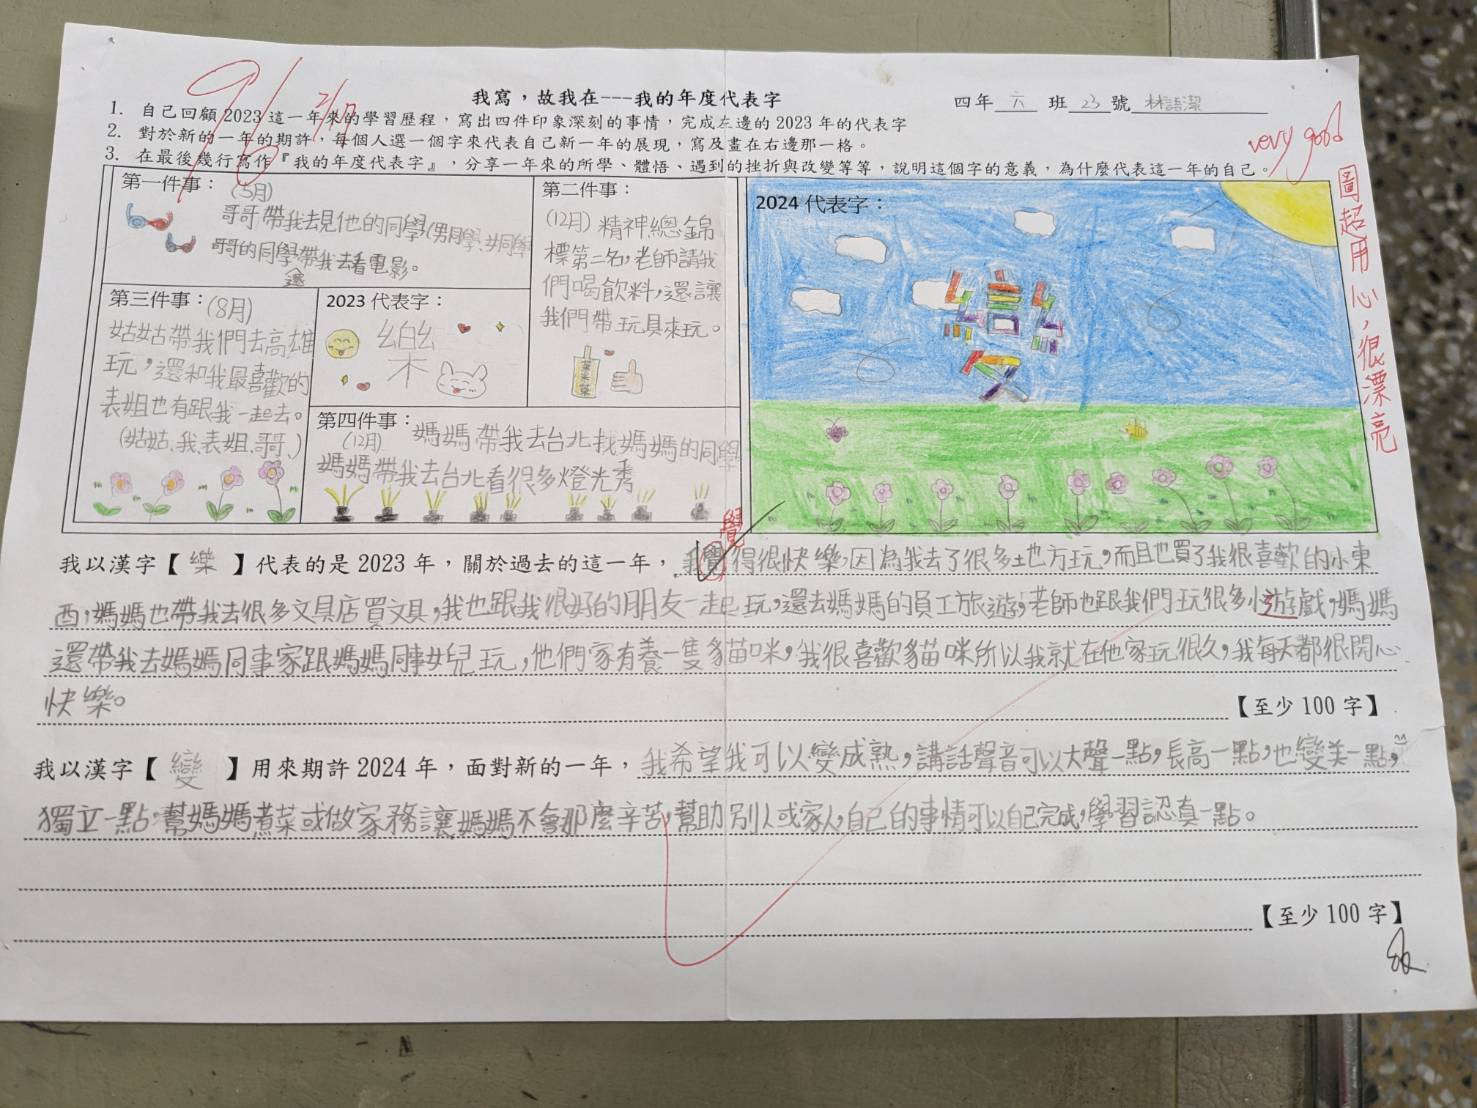 我寫，故我在---我的年度代表字
四年 六 班 23 號 林語潔
1. 自己回顧 2023 這一年來的學習歷程，寫出四件印象深刻的事情，完成左邊的 2023 年的代表字
2. 對於新的一年的期許，每個人選一個字來代表自己新一年的展現，寫及畫在右邊那一格。
3. 在最後幾行寫作『我的年度代表字』，分享一年來的所學、體悟、遇到的挫折與改變等等，說明這個字的意義，為什麼代表這一年的自己。
very good
圖超用心，很漂亮
第一件事：(5月)
哥哥帶我去見他的同學(男同學、女同學
哥哥的同學還帶我去看電影。
第二件事：
(12月) 精神總錦
標第二名，老師請我
們喝飲料，還讓
我們帶玩具來玩。
第三件事：(8月)
姑姑帶我們去高雄
玩，還和我最喜歡的
表姐也有跟我一起去。
(姑姑、我、表姐、哥哥、)
2023 代表字：
樂
第四件事：
(12月) 媽媽帶我去台北找媽媽的同學
媽媽帶我去台北看很多燈光秀
2024 代表字：
變
覺
我以漢字【 樂 】代表的是 2023 年，關於過去的這一年，我覺得很快樂，因為我去了很多地方玩，而且也買了我很喜歡的小東
西，媽媽也帶我去很多文具店買文具，我也跟我很好的朋友一起玩，還去媽媽的員工旅遊，老師也跟我們玩很多小遊戲，媽媽
還帶我去媽媽同事家跟媽媽同事女兒玩，他們家有養一隻貓咪，我很喜歡貓咪所以我就在他家玩很久，我每天都很開心
快樂。
【至少 100 字】
我以漢字【 變 】用來期許 2024 年，面對新的一年，我希望我可以變成熟，講話聲音可以大聲一點，長高一點，也變美一點，
獨立一點，幫媽媽煮菜或做家務讓媽媽不會那麼辛苦，幫助別人或家人，自己的事情可以自己完成，學習認真一點。
【至少 100 字】